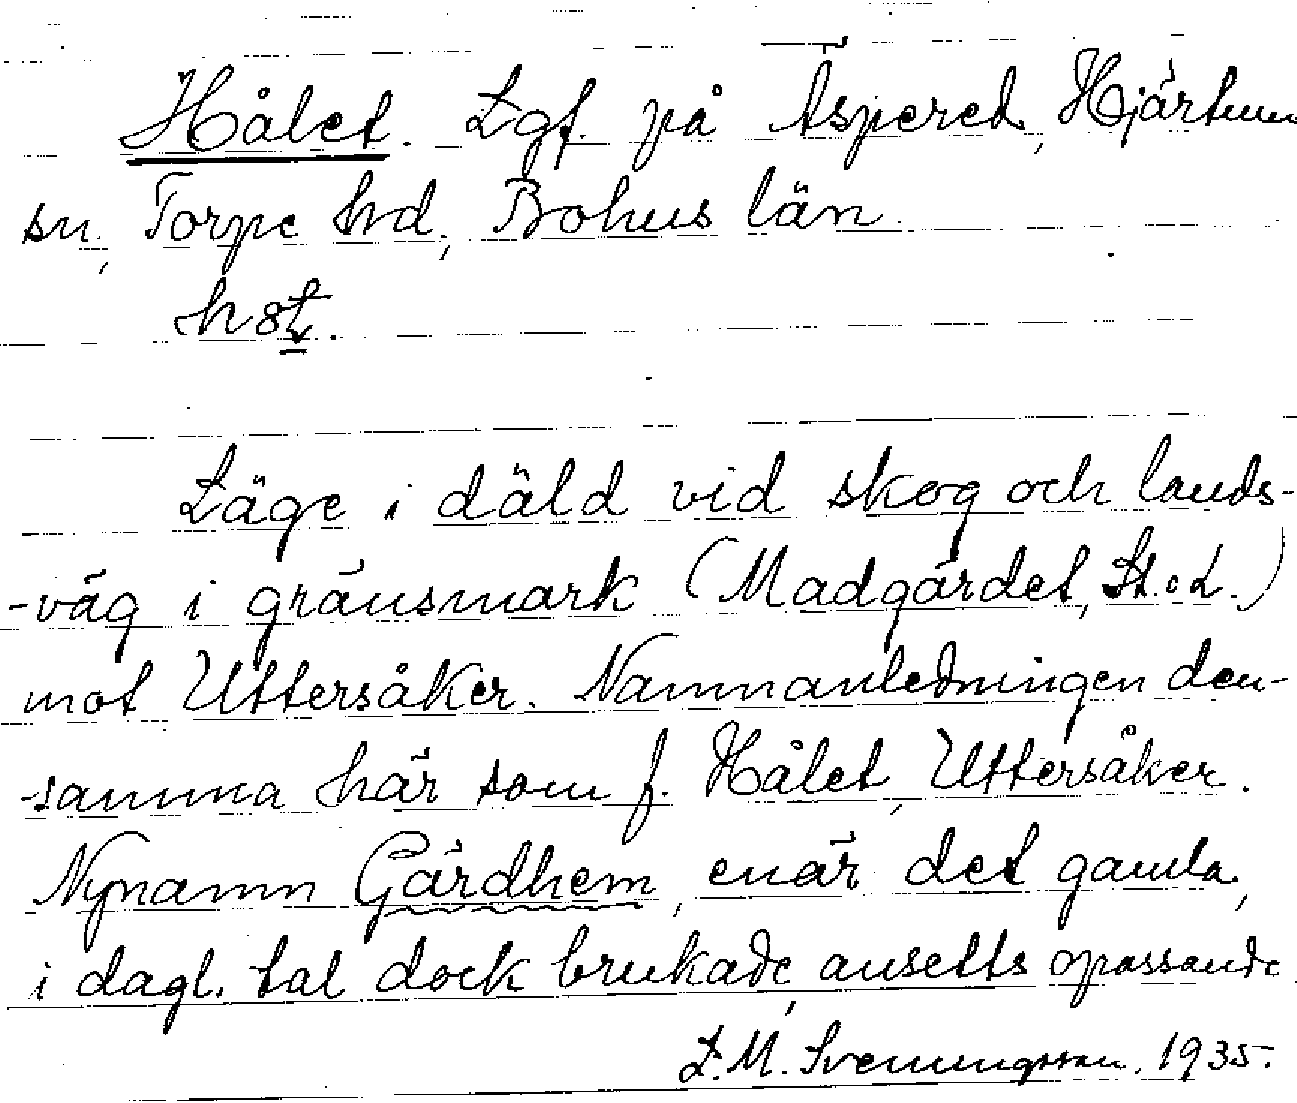 Hålet. Lgf. på Äspered, Hjärtum
sn, Torpe hrd, Bohus län.
Läge i däld vid skog och lands-
-väg i gräusmark (Madgärdet, St.o L.)
mot Uttersåker. Namnanledningen den-
samma här som f. Hålet, Uttersåker.
Nynamn Gärdhem, enär det gamla,
i dagl. tal dock brukade, ansetts opassande
L.M. Svenungsson. 1935.